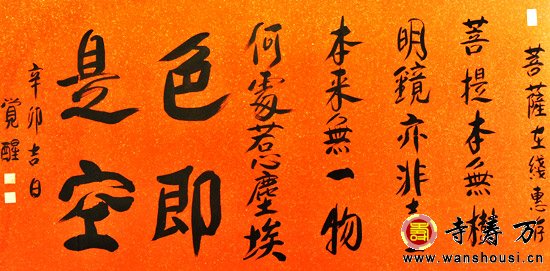 菩薩在綫惠存
菩提本無樹
明鏡亦非臺
本来無一物
何處惹塵埃
色即
是空
辛卯吉日
覺醒
寺壽万
www.wanshousi.cn